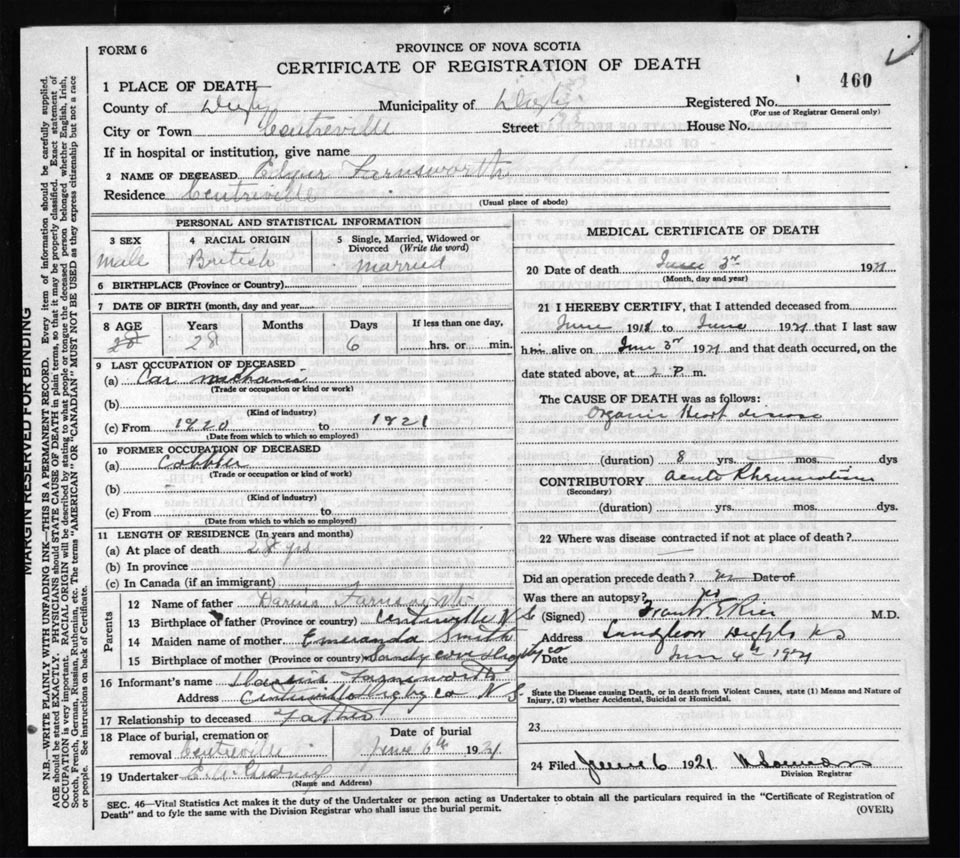 FORM 6
PROVINCE OF NOVA SCOTIA
CERTIFICATE OF REGISTRATION OF DEATH
460
1 PLACE OF DEATH
County of Digby Municipality of Digby Registered No.
(For use of Registrar General only)
City or Town Centreville Street House No.
If in hospital or institution, give name
2 NAME OF DECEASED Farnsworth
Residence Centreville
(Usual place of abode)
PERSONAL AND STATISTICAL INFORMATION
3 SEX 4 RACIAL ORIGIN 5 Single, Married, Widowed or Divorced (Write the word)
Male British Married
6 BIRTHPLACE (Province or Country)
7 DATE OF BIRTH (month, day and year
8 AGE Years Months Days If less than one day,
28 28 6 hrs. or min.
9 LAST OCCUPATION OF DECEASED
(a) Car mechanic
(Trade or occupation or kind or work)
(b)
(Kind of industry)
(c) From 1920 to 1921
(Date from which to which so employed)
10 FORMER OCCUPATION OF DECEASED
(a) Cobbler
(Trade or occupation or kind of work)
(b)
(Kind of industry)
(c) From to
(Date from which to which so employed)
11 LENGTH OF RESIDENCE (In years and months)
(a) At place of death 28 yrs
(b) In province
(c) In Canada (if an immigrant)
Parents
12 Name of father Farnsworth
13 Birthplace of father (Province or country) Centreville N S
14 Maiden name of mother Emeranda Smith
15 Birthplace of mother (Province or country) Sandy Cove Digby Co
16 Informant's name Farnsworth
Address Centreville Digby Co N S
17 Relationship to deceased Father
18 Place of burial, cremation or removal Centreville
Date of burial June 6th 1921
19 Undertaker
(Name and Address)
MEDICAL CERTIFICATE OF DEATH
20 Date of death June 3rd 1921
(Month, day and year)
21 I HEREBY CERTIFY, that I attended deceased from
June 191 to June 1921 that I last saw
him alive on June 3rd 1921 and that death occurred, on
the date stated above, at 2 P. m.
The CAUSE OF DEATH was as follows:
Organic Heart disease
(duration) 8 yrs. mos. dys
CONTRIBUTORY Acute Rheumatism
(Secondary)
(duration) yrs. mos. dys.
22 Where was disease contracted if not at place of death?
Did an operation precede death? no Date of
Was there an autopsy? no
(Signed) Frank E Rice M.D.
Address Digby N S
Date June 4th 1921
State the Disease causing Death, or in death from Violent Causes, state (1) Means and Nature of
Injury, (2) whether Accidental, Suicidal or Homicidal.
23
24 Filed June 6 1921
Division Registrar
SEC. 46—Vital Statistics Act makes it the duty of the Undertaker or person acting as Undertaker to obtain all the particulars required in the "Certificate of Registration of
Death" and to fyle the same with the Division Registrar who shall issue the burial permit.
(OVER)
MARGIN RESERVED FOR BINDING
N.B.—WRITE PLAINLY WITH UNFADING INK—THIS IS A PERMANENT RECORD. Every item of information should be carefully supplied.
AGE should be stated EXACTLY. PHYSICIANS should STATE CAUSE OF DEATH in plain terms, so that it may be properly classified. Exact statement of
OCCUPATION is very important. RACIAL ORIGIN will be described by stating to what people or tongue the deceased person belonged whether English, Irish,
Scotch, French, German, Russian, Ruthenian, etc. The terms "AMERICAN" OR "CANADIAN" MUST NOT BE USED as they express citizenship but not a race
or people. See instructions on back of Certificate.